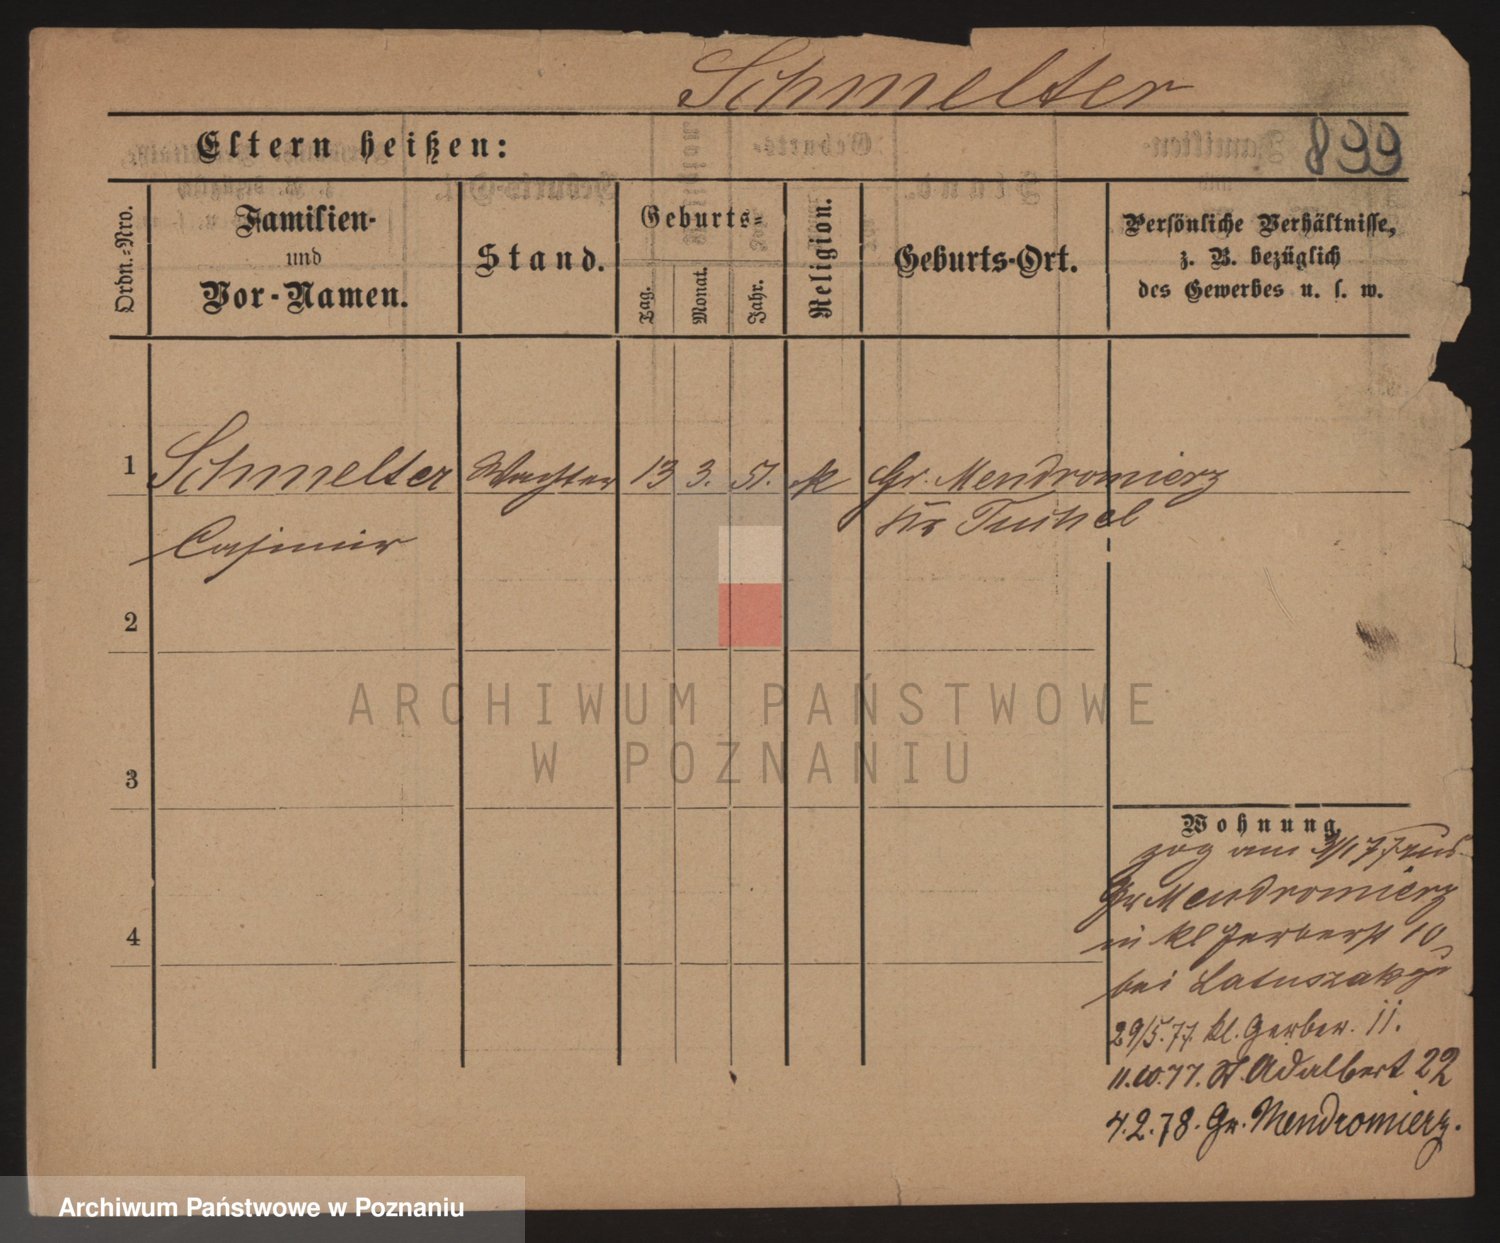 Schmelter
Eltern heißen:
899
Ordn.-Nro.
Familien-
und
Vor-Namen.
Stand.
Geburts-
Tag.
Monat.
Jahr.
Religion.
Geburts-Ort.
Persönliche Verhältnisse,
z. B. bezüglich
des Gewerbes u. s. w.
1 Schmelter Wachter 13 3. 51. k Gr. Mendromierz
Casimir Kr Tuchel
2
3
4
ARCHIWUM PAŃSTWOWE
W POZNANIU
Wohnung.
zog am 3/1 77 aus
Gr Mendromierz
in kl Gerberst 10
bei Latuszak
29/5.77. kl. Gerber. 11.
11.10.77. St. Adalbert 22
4.2.78. Gr. Mendromierz.
Archiwum Państwowe w Poznaniu